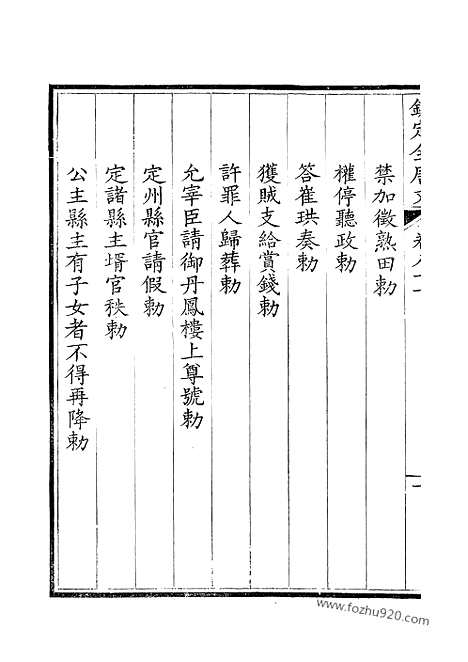 禁加徵熟田勅
權停聽政勅
答崔珙奏勅
獲賊支給賞錢勅
許罪人歸葬勅
允宰臣請御丹鳳樓上尊號勅
定州縣官請假勅
定諸縣主壻官秩勅
公主縣主有子女者不得再降勅
www.fozhu920.com